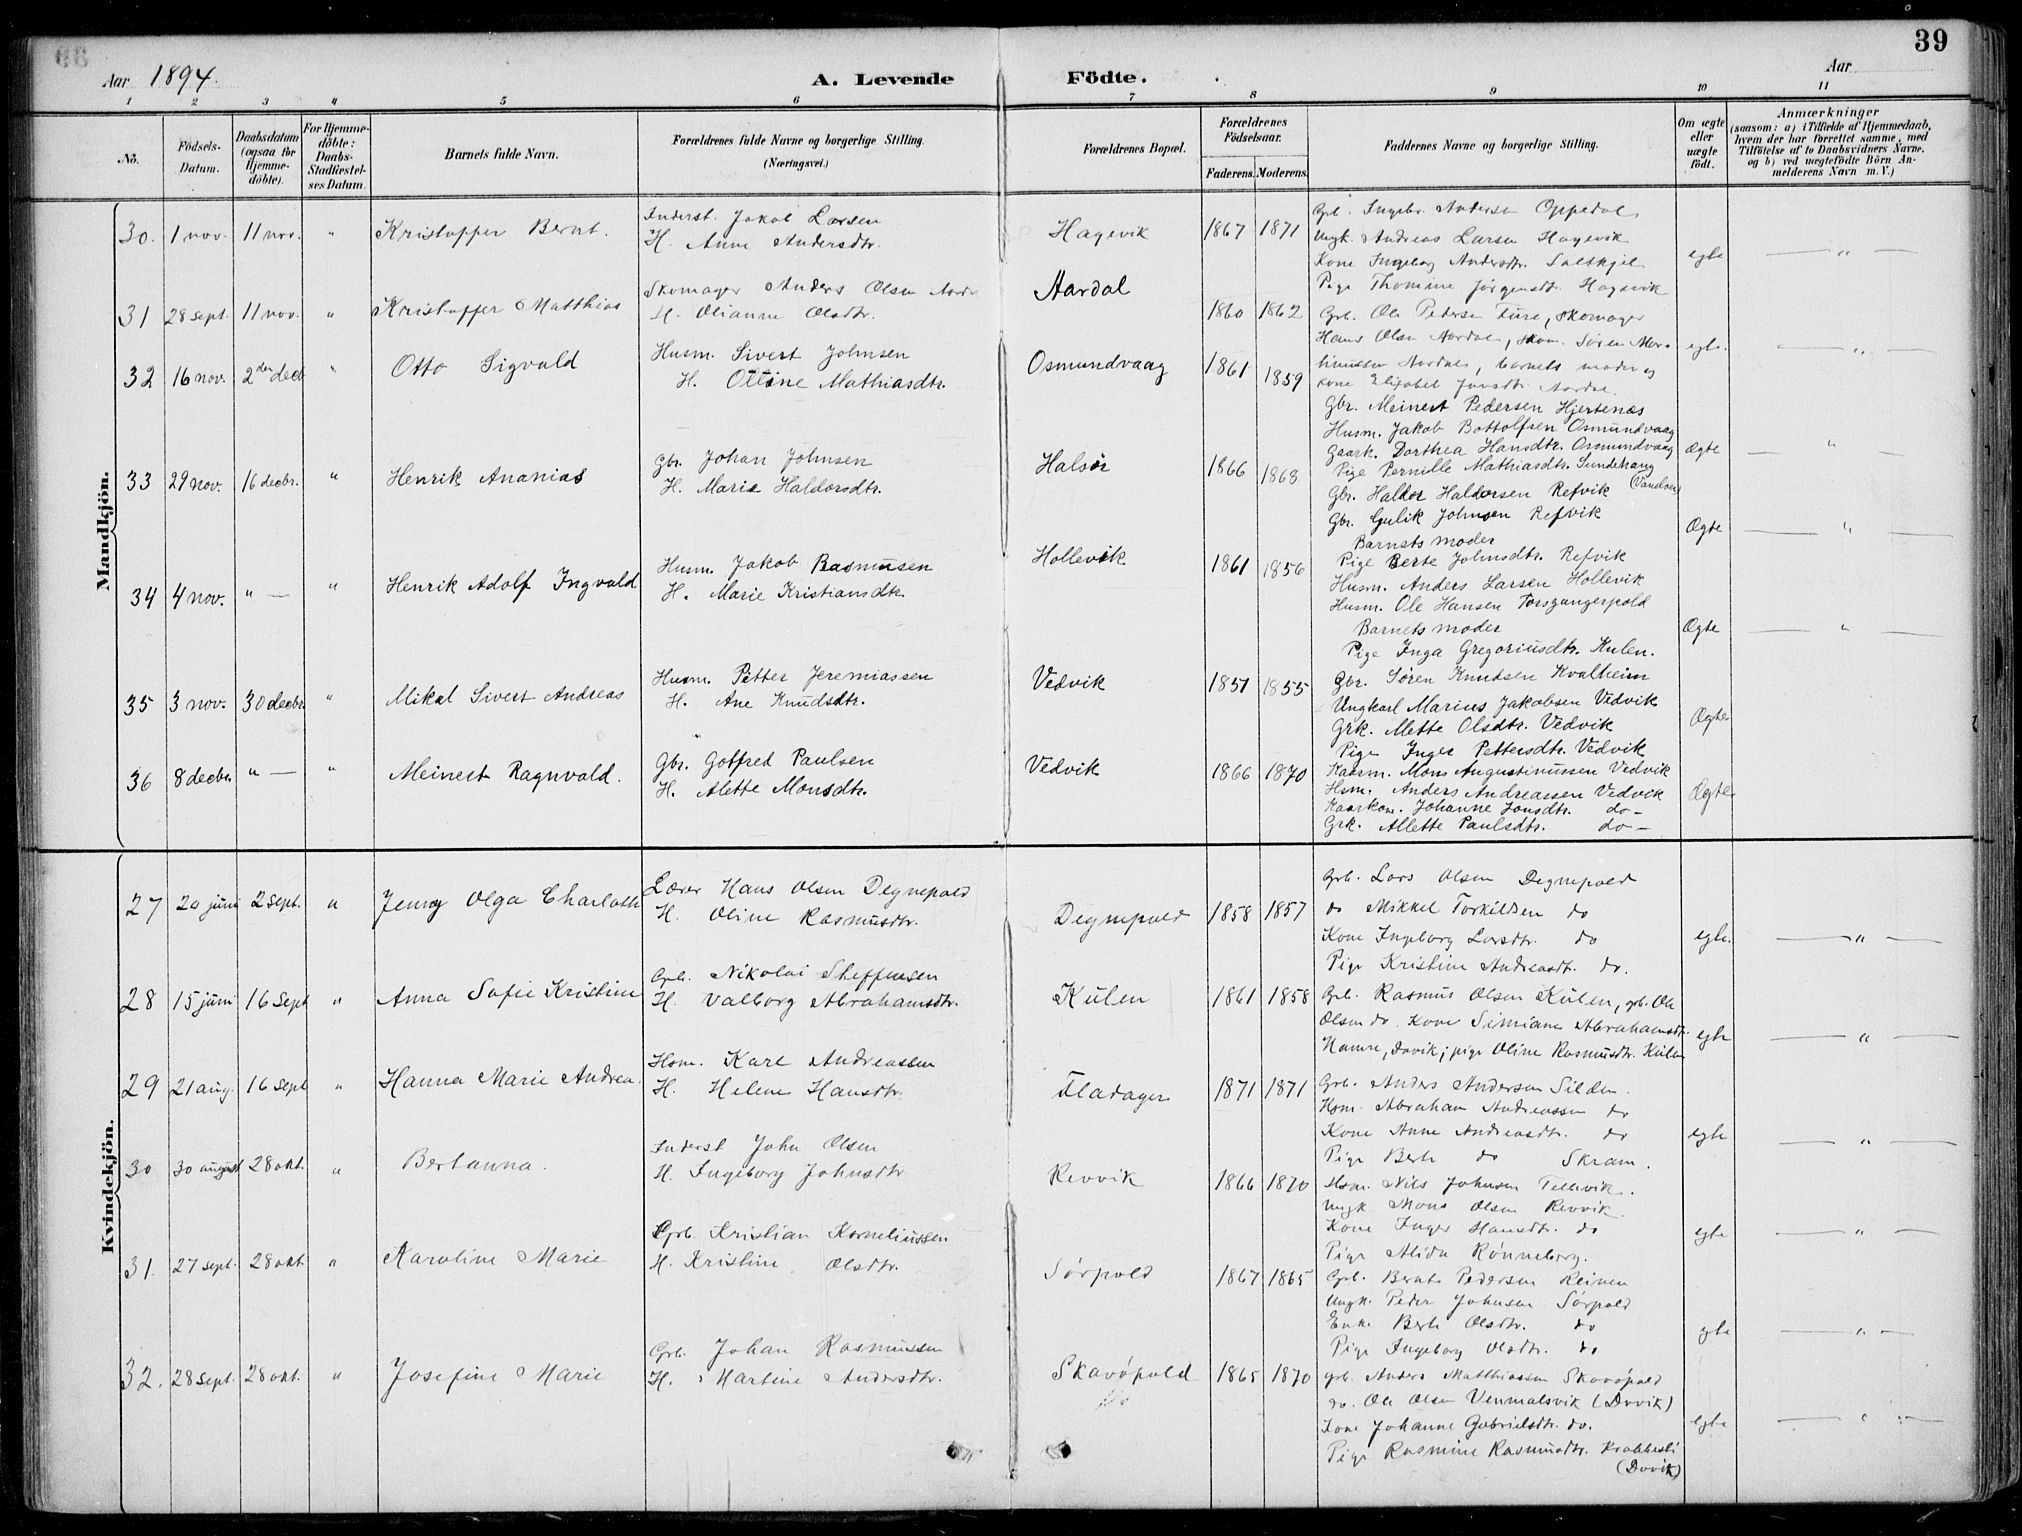 39
Aar 1894.
A. Levende Födte.
Aar
1 2 3 4 5 6 7 8 9 10 11
No.
Födsels-Datum.
Daabsdatum (ogsaa for Hjemme-döbte).
For Hjemme-döbte: Daabs-Stadfæstel-ses Datum.
Barnets fulde Navn.
Forældrenes fulde Navne og borgerlige Stilling. (Næringsvei.)
Forældrenes Bopæl.
Forældrenes Födselsaar.
Faderens. Moderens.
Faddernes Navne og borgerlige Stilling.
Om ægte eller uægte födt.
Anmærkninger
(saasom: a) i Tilfælde af Hjemmedaab, hvem der har forrettet samme, med Tilföielse af to Daabsvidners Navne, og b) ved uægtefödte Börn An-melderens Navn m. V.)
Mandkjön.
30. 1 nov. 11 nov. " Kristoffer Bernt.
Inderst. Jakob Larsen
H. Anne Andersdtr.
Hagevik 1867 1871
Grb. Ingebr. Andersen Oppedal
Ungk. Andreas Larsen Hagevik
Kone Ingeborg Andersdtr. Saltkjel
Pige Thomine Jörgensdtr. Hagevik
egte "
31 28 sept. 11 nov. " Kristoffer Matthias
Skomager Anders Olsen Aarda
H. Olianne Olsdtr.
Aardal 1860 1862
Grb. Ole Pedersen Fure, skomager
Hans Olsen Aardal, skom. Søren Mor-
tinussen Aardal, barnets moder og
kone Elisabet Jonsdtr. Aardal
egte. "
32 16 nov. 2den decb " Otto Sigvald
Husm. Sivert Johnsen
H. Ottine Mathiasdtr.
Osmundvaag 1861 1859
Gbr. Meinert Pedersen Hjertenæs
Husm. Jakob Bottolfsen Osmundvaag
Gaark. Dorthea Hansdtr. Osmundvaag
Pige Pernille Mathiasdtr. Sundehaug
Ægte "
33 29 nov. 16 decbr. " Henrik Ananias
Gbr. Johan Johnsen
H. Marie Haldorsdtr.
Halsör 1866 1868
Gbr. Haldor Haldorsen Refvik
Gbr. Gulik Johnsen Refvik
Barnets moder
Pige Berte Johnsdtr. Refvik
Ægte "
34 4 nov. " — " Henrik Adolf Ingvald
Husm. Jakob Rasmusen
H. Marie Kristiansdtr.
Hollevik 1861 1856
Husm. Anders Larsen Hollevik
Husm. Ole Hansen Torsgangerpold
Barnets moder
Pige Inga Gregoriusdtr. Kulen.
Ægte "
35 3 nov. 30 decbr. " Mikal Sivert Andreas
Husm. Petter Jeremiassen
H. Ane Knudsdtr.
Vedvik 1851 1855
Gbr. Søren Knudsen Kvalheim
Ungkarl Marius Jakobsen Vedvik
Grk. Mette Olsdtr. Vedvik
Pige Inger Pettersdtr. Vedvik
Ægte
36 8 decbr. " — " Meinert Ragnvald.
Gbr. Gotfred Paulsen
H. Alette Monsdtr.
Vedvik 1866 1870
Kaarm. Mons Augustinussen Vedvik
Hsm. Anders Andreassen Vedvik
Kaarkone. Johanne Jonsdtr. do-
Grk. Allette Paulsdtr. do-
Ægte
Kvindekjön.
27 20 juni 2 sept. " Jenny Olga Charlotte
Lærer Hans Olsen Degnepold
H. Oline Rasmusdtr.
Degnepold 1858 1857
Grb. Lars Olsen Degnepold
do Mikkel Torkildsen do
Kone Ingeborg Larsdtr. do
Pige Kristine Andreasdtr. do.
egte. "
28 15 juni 16 sept " Anna Sofie Kristine
Grb. Nikolai Steffensen
H. Valborg Abrahamsdtr.
Kulen 1861 1858
Grb. Rasmus Olsen Kulen, grb. Ole
Olsen do. Kone Simiane Abrahamsdtr.
Hamre, Davik; pige Oline Rasmusdtr. Kulen
egte "
29 21 aug. 16 sept " Hanna Marie Andrea.
Hsm. Karl Andreassen
H. Helene Hansdtr.
Fladager 1871 1871
Grb. Anders Andersen Silden.
Hsm. Abraham Andreassen do
Kone Anne Andreasdtr. do
Pige Berte do Skram.
egte "
30 30 august 28 okt. " Bertanna.
Inderst John Olsen
H. Ingeborg Johnsdtr
Revvik 1866 1870
Hsm. Nils Johnsen Tellevik.
Ungk. Mons Olsen Revvik.
Kone Inger Hansdtr. do
Pige Alida Rønneberg.
egte "
31. 27 sept. 28 okt. " Karoline Marie
Grb. Kristian Korneliussen
H. Kristine Olsdtr.
Sørpold 1867 1865
Grb. Bernt Pedersen Reinen
Ungk. Peder Johnsen Sørpold
Enke Berte Olsdtr. do
Pige Ingeborg Olsdtr. do
egte "
32. 28 sept. 28 okt. " Josefine Marie
Grb. Johan Rasmussen
H. Martine Andersdtr.
Skavøpold 1865 1870
grb. Anders Matthiassen Skavøpold
do. Ole Olsen Venmalsvik (Davik)
Kone Johanne Gabrielsdtr. do.
Pige Rasmine Rasmusdtr. Krabbesti
(Davik)
egte "